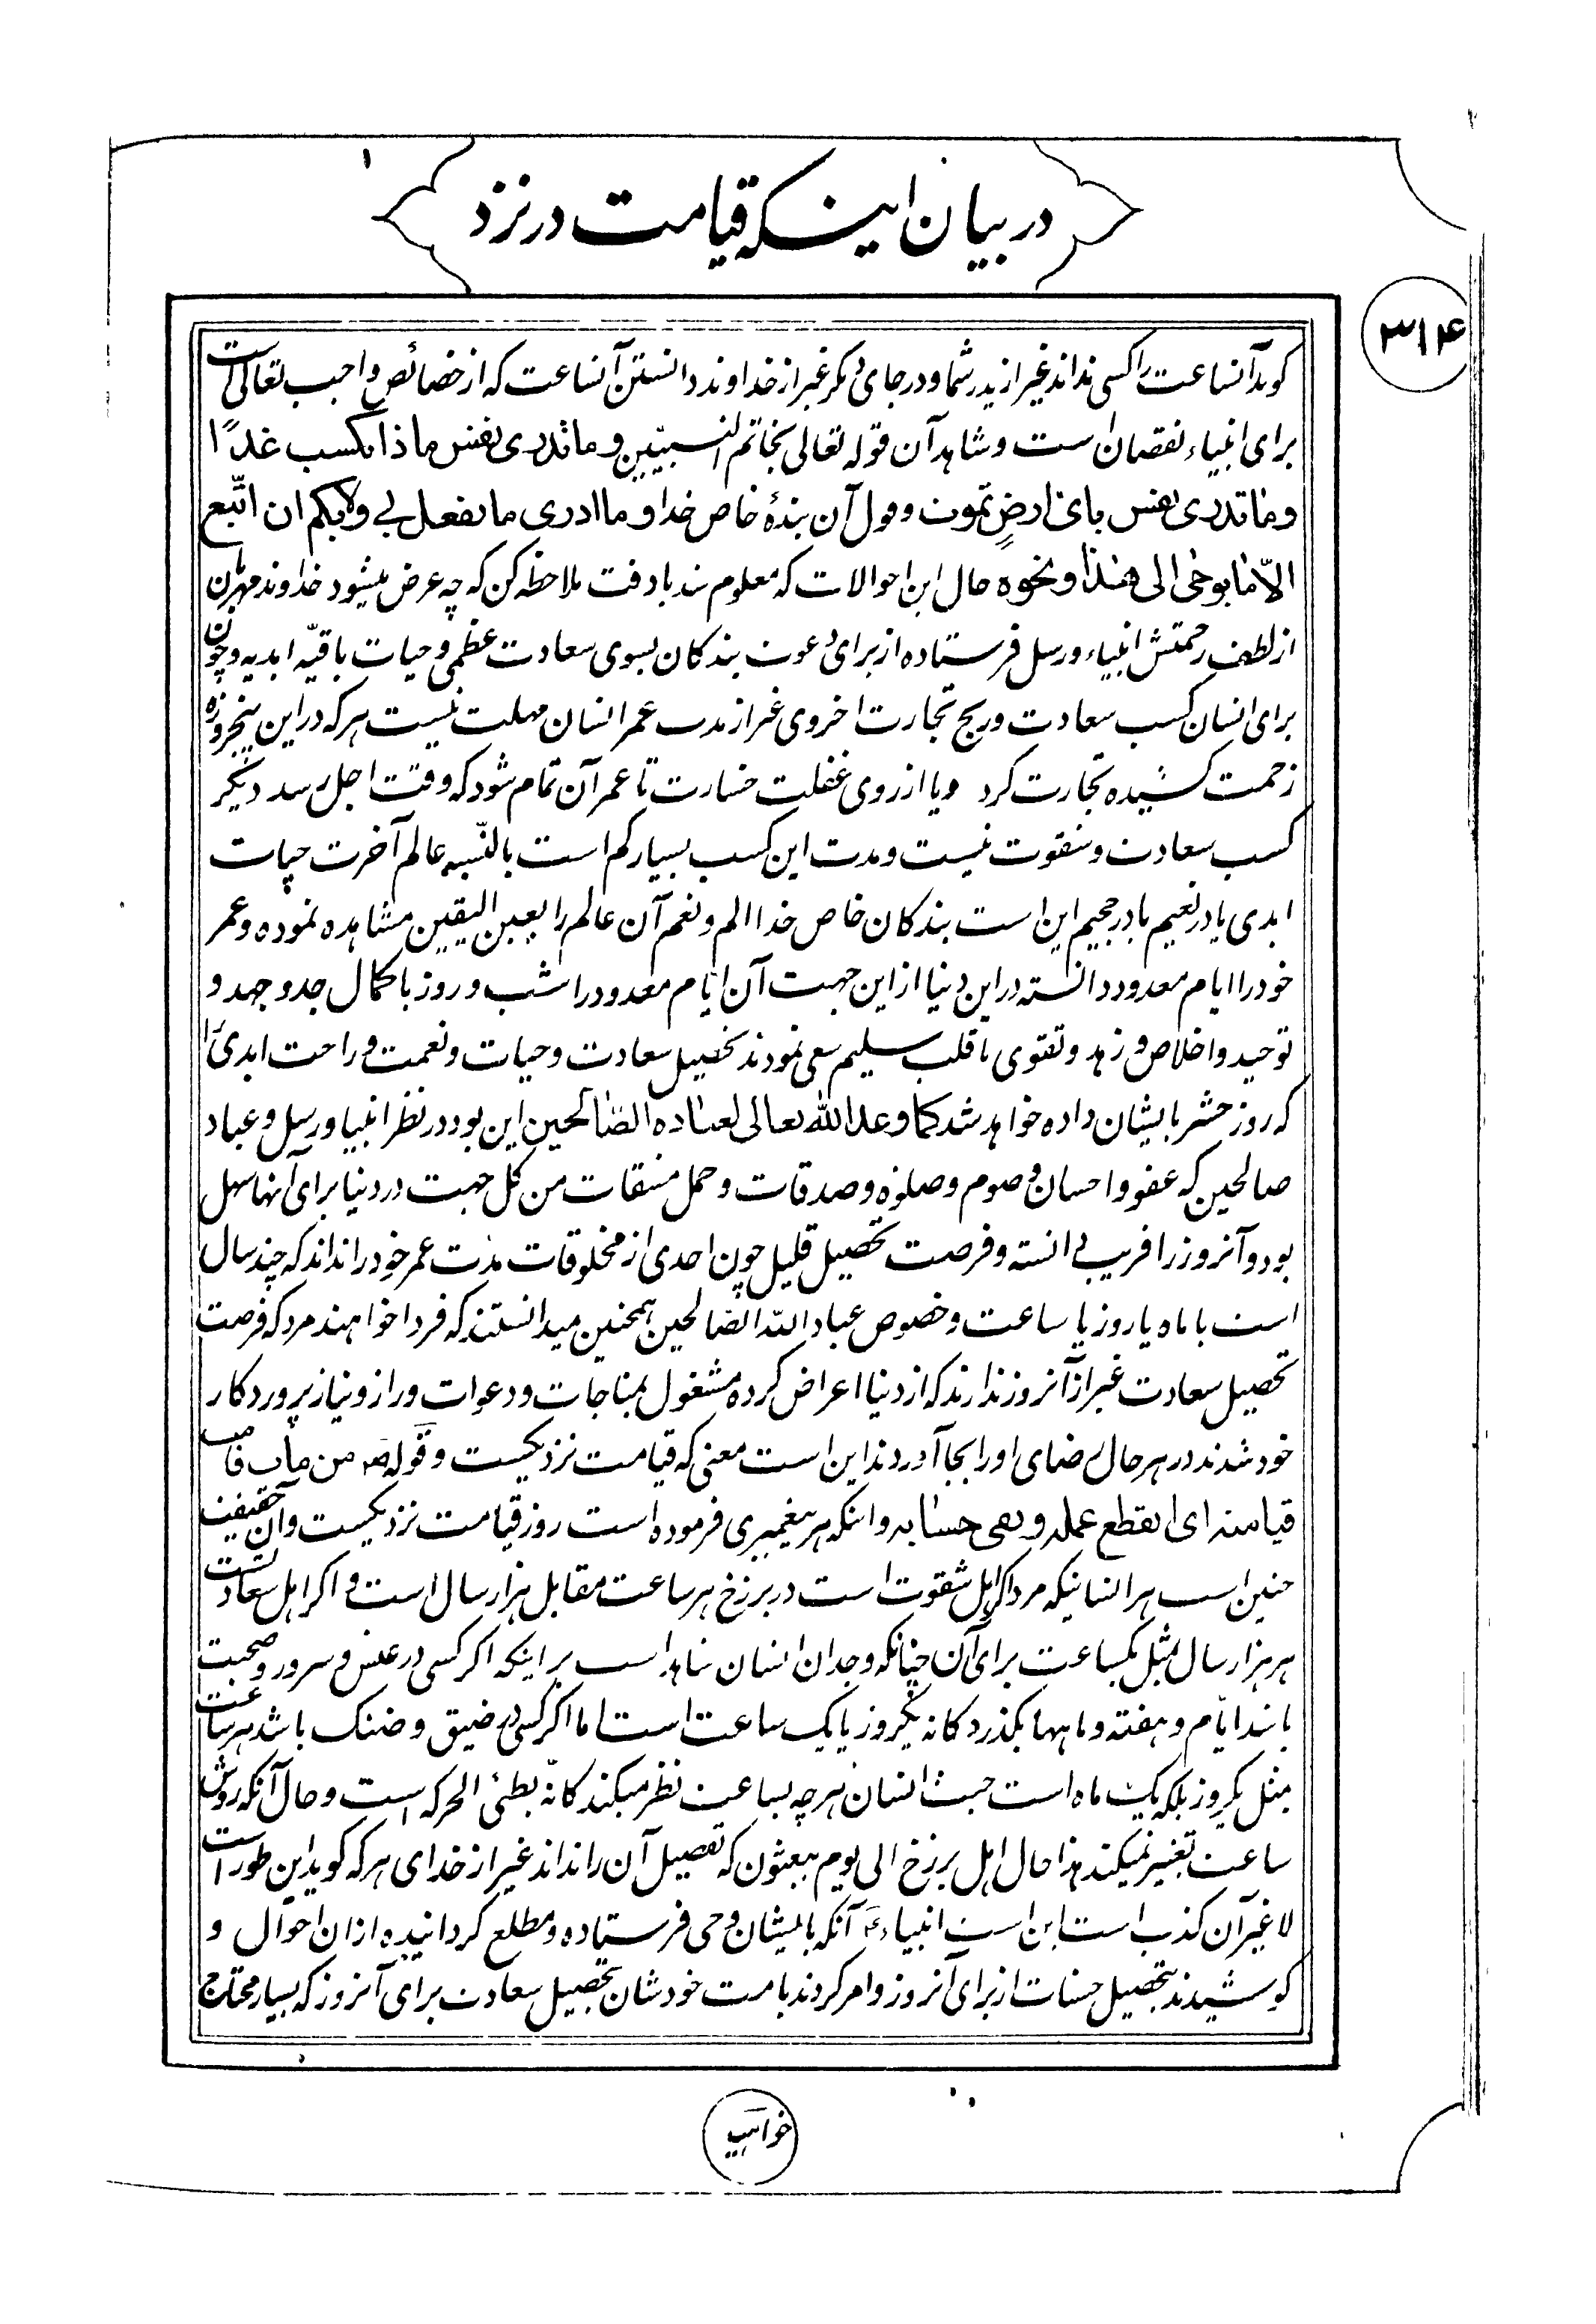 در بیان اینکه قیامت در نزد
۳۱۴
کوید آنساعت را کسی نداند غیر از پدر شما و در جای دیکر غیر از خداوند دانستن آنساعت که از خصائص واجب تعالی است
برای انبیاء نقصان است و شاهد آن قوله تعالی بخاتم النبیین و ما تدری نفس ماذا تکسب غدًا
و ما تدری نفس بای ارضٍ تموت و قول آن بندهٔ خاص خدا و ما ادری ما یفعل بی و لا بکم ان اتّبع
الاّ ما یوحی الی هذا و نحوه حال این احوالات که معلوم شد با دقت ملاحظه کن که چه عرض میشود خداوند مهربان
از لطف رحمتش انبیاء و رسل فرستاده از برای دعوت بندکان بسوی سعادت عظمی و حیات باقیّه ابدیه و چون
برای انسان کسب سعادت و ربح تجارت اخروی غیر از مدت عمر انسان مهلت نیست هر که در این پنجروزه
زحمت کشیده تجارت کرد و یا از روی غفلت خسارت تا عمر آن تمام شود که وقت اجل رسد دیکر
کسب سعادت و شقوت نیست و مدت این کسب بسیار کم است بالنّسبه عالم آخرت حیات
ابدی یا در نعیم یا در جحیم این است بندکان خاص خدا الم و نعم آن عالم را بعین الیقین مشاهده نموده و عمر
خود را ایام معدود دانسته در این دنیا از این جهت آن ایّام معدود را شب و روز با کمال جد و جهد و
توحید و اخلاص و زهد و تقوی با قلب سلیم سعی نمودند تحصیل سعادت و حیات و نعمت و راحت ابدی را
که روز حشر بایشان داده خواهد شد کما وعد الله تعالی لعباده الصّالحین این بود در نظر انبیا و رسل و عباد
صالحین که عفو و احسان و صوم و صلوة و صدقات و حمل مشقات من کل جهت در دنیا برای آنها سهل
بود و آنروز را قریب دانسته و فرصت تحصیل قلیل چون احدی از مخلوقات مدّت عمر خود را نداند که چند سال
است یا ماه یا روز یا ساعت و خصوص عباد الله الصالحین همچنین میدانستند که فردا خواهند مرد که فرصت
تحصیل سعادت غیر از آنروز ندارند که از دنیا اعراض کرده مشغول بمناجات و دعوات و راز و نیاز پروردکار
خود شدند در هر حال رضای او را بجا آوردند این است معنی که قیامت نزدیکست و قوله ص من مات قامت
قیامته ای انقطع عمله و بقی حسابه و اینکه هر پیغمبری فرموده است روز قیامت نزدیکست و آن حقیقت
چنین است هر انسانیکه مرد اکر اهل شقوت است در برزخ هر ساعت مقابل هزار سال است و اکر اهل سعادتست
هر هزار سال مثل یکساعت برای آن چنانکه وجدان انسان شاهد است بر اینکه اکر کسی در عیش و سرور و صحبت
باشد ایّام و هفته و ماهها بکذرد کانه یکروز یا یک ساعت است اما اکر کسی در ضیق و ضنک باشد هر ساعت
مثل یکروز بلکه یک ماه است حیث انسان هر چه بساعت نظر میکند کانّه بطئی الحرکه است و حال آنکه روش
ساعت تغییر نمیکند هذا حال اهل برزخ الی یوم یبعثون که تفصیل آن را نداند غیر از خدای هر که کوید این طور است
لا غیر آن کذب است این است انبیاء ع آنکه بایشان وحی فرستاده و مطلع کردانیده از ان احوال و
کوشیدند بتحصیل حسنات از برای آنروز و امر کردند بامت خودشان بتحصیل سعادت برای آنروز که بسیار محتاج
خواهید